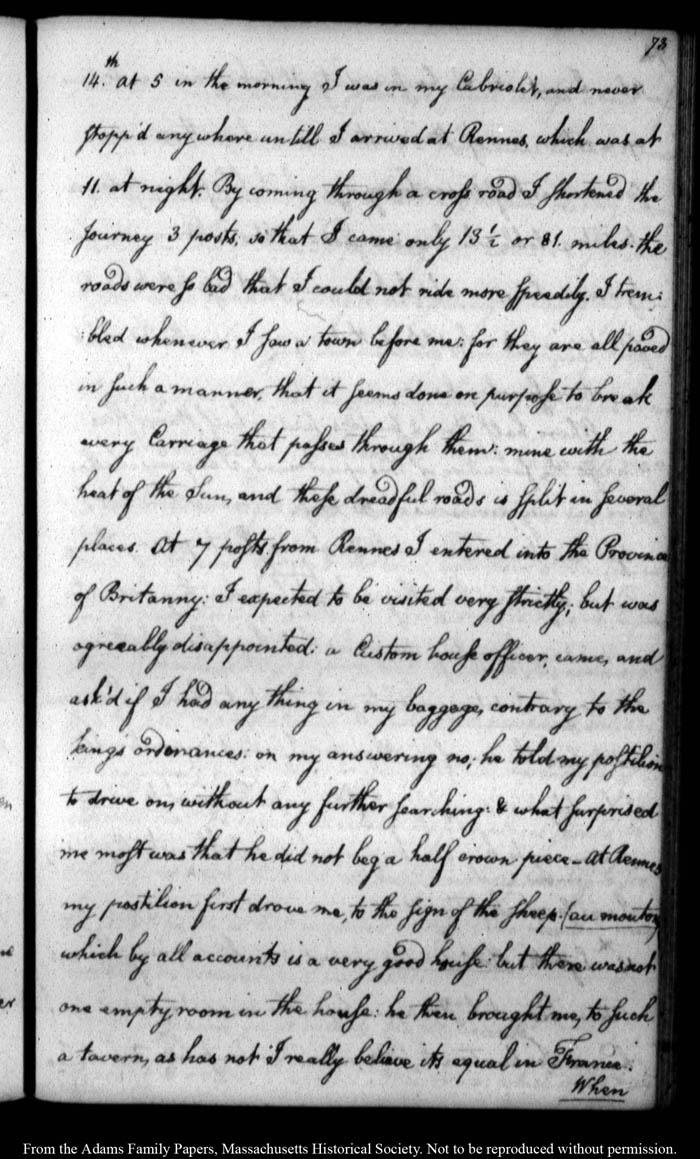 73
14.th At 5 in the morning I was in my Cabriolet, and never
stopp'd any where untill I arrived at Rennes, which was at
11. at night. By coming through a cross road I shortened the
journey 3 posts, so that I came only 13 1/2 or 81. miles. the
roads were so bad that I could not ride more speedily. I trem:
:bled whenever I saw a town before me: for they are all paved
in such a manner, that it seems done on purpose to break
every Carriage that passes through them: mine with the
heat of the Sun, and these dreadful roads is split in several
places. At 7 posts from Rennes I entered into the Province
of Britanny: I expected to be visited very strictly; but was
agreeably disappointed: a Custom house officer, came, and
ask'd if I had any thing in my baggage, contrary to the
kings ordonances: on my answering no; he told my postilion
to drive on, without any further searching: & what surprised
me most was that he did not beg a half crown piece—At Rennes
my postilion first drove me, to the sign of the sheep. (au mouton)
which by all accounts is a very good house: but there was not
one empty room in the house: he then brought me, to such
a tavern, as has not I really believe its equal in France.
When
From the Adams Family Papers, Massachusetts Historical Society. Not to be reproduced without permission.